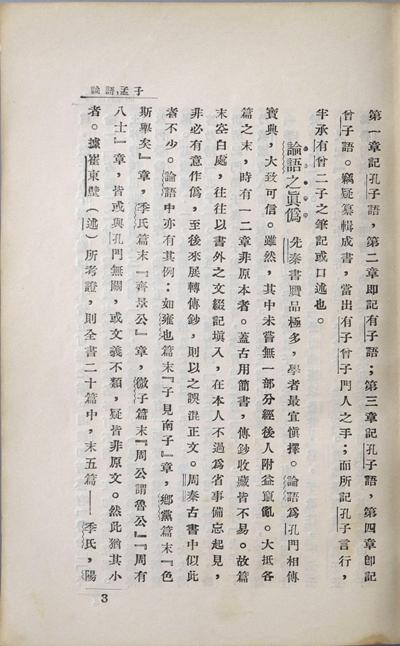 論語,孟子
第一章記孔子語,第二章即記有子語;第三章記孔子語,第四章即記
曾子語。竊疑纂輯成書,當出有子曾子門人之手;而所記孔子言行,
半承有曾二子之筆記或口述也。
論語之眞僞 先秦書贋品極多,學者最宜愼擇。論語爲孔門相傳
寶典,大致可信。雖然,其中未嘗無一部分經後人附益竄亂。大抵各
篇之末,時有一二章非原本者。蓋古用簡書,傳鈔收藏皆不易。故篇
末空白處,往往以書外之文綴記塡入,在本人不過爲省事備忘起見,
非必有意作僞,至後來展轉傳鈔,則以之誤混正文。周秦古書中似此
者不少。論語中亦有其例:如雍也篇末『子見南子』章,鄉黨篇末『色
斯舉矣』章,季氏篇末『齊景公』章,微子篇末『周公謂魯公』『周有
八士』章,皆或與孔門無關,或文義不類,疑皆非原文。然此猶其小
者。據崔東壁(述)所考證,則全書二十篇中,末五篇——季氏,陽
3